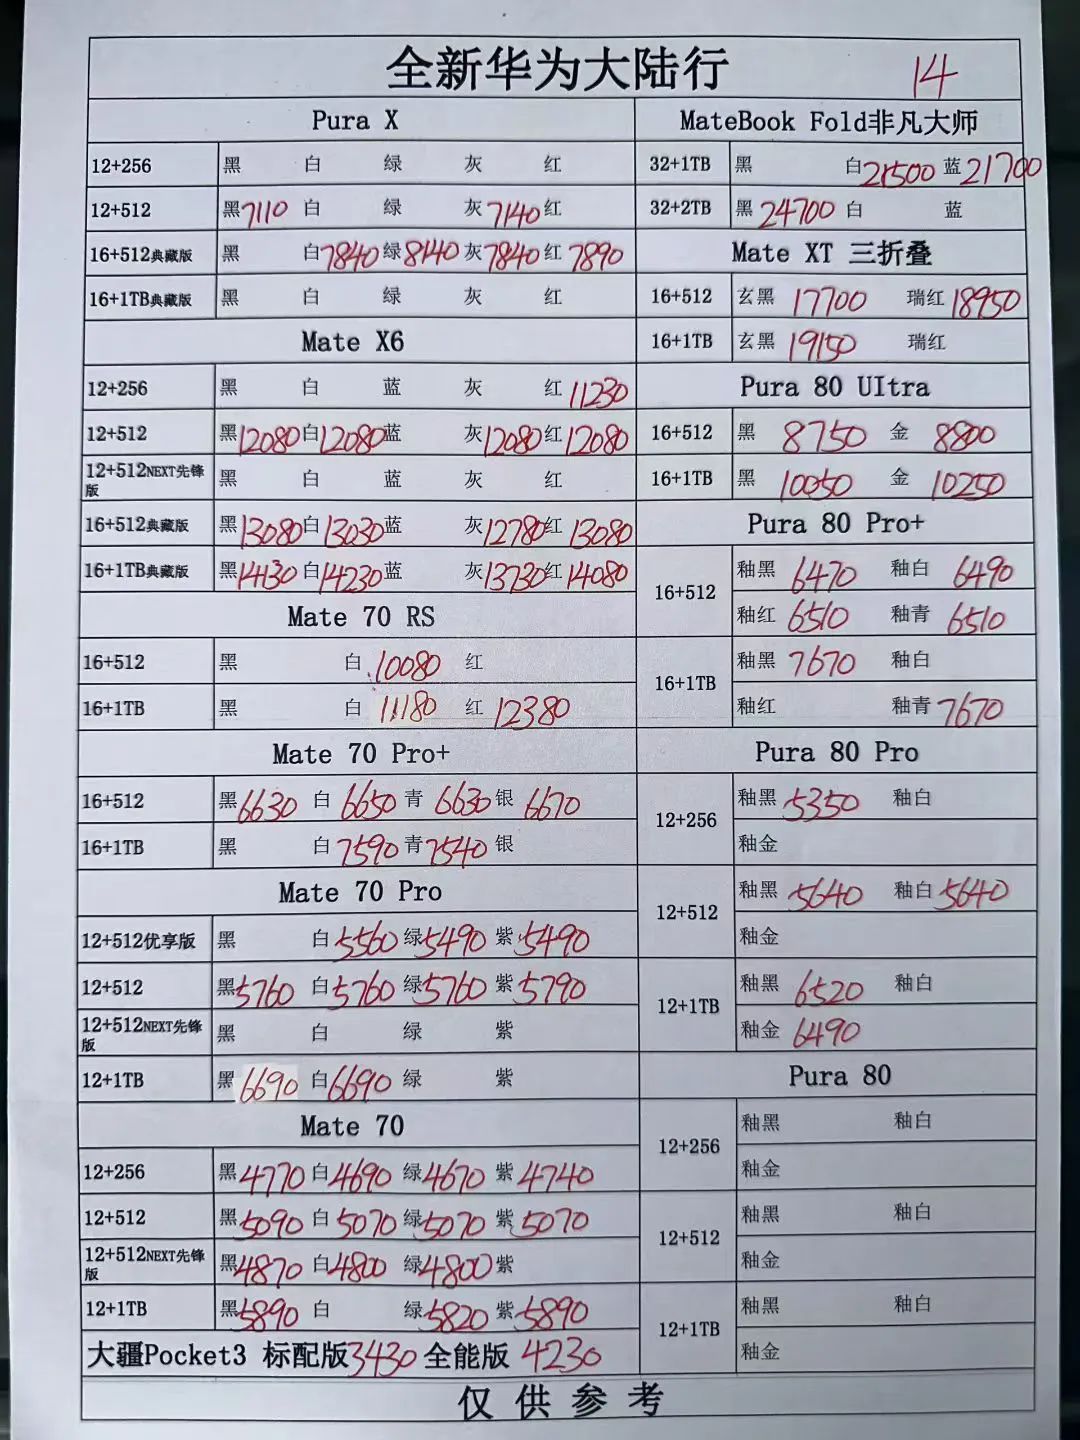 全新华为大陆行 14
Pura X
12+256 黑 白 绿 灰 红
12+512 黑7110 白 绿 灰7140 红
16+512典藏版 黑 白7840 绿8140 灰7840 红7890
16+1TB典藏版 黑 白 绿 灰 红
Mate X6
12+256 黑 白 蓝 灰 红11230
12+512 黑12080 白12080 蓝 灰12080 红12080
12+512NEXT先锋版 黑 白 蓝 灰 红
16+512典藏版 黑13080 白13030 蓝 灰12780 红13080
16+1TB典藏版 黑14130 白14230 蓝 灰13730 红14080
Mate 70 RS
16+512 黑 白10080 红
16+1TB 黑 白11180 红12380
Mate 70 Pro+
16+512 黑6630 白6650 青6630 银6670
16+1TB 黑 白7590 青7540 银
Mate 70 Pro
12+512优享版 黑 白5560 绿5490 紫5490
12+512 黑5760 白5760 绿5760 紫5790
12+512NEXT先锋版 黑 白 绿 紫
12+1TB 黑6690 白6690 绿 紫
Mate 70
12+256 黑4770 白4690 绿4670 紫4740
12+512 黑5090 白5070 绿5070 紫5070
12+512NEXT先锋版 黑4870 白4800 绿4800 紫
12+1TB 黑5890 白 绿5820 紫5890
大疆Pocket3 标配版3430 全能版 4230
MateBook Fold非凡大师
32+1TB 黑 白21500 蓝21700
32+2TB 黑24700 白 蓝
Mate XT 三折叠
16+512 玄黑 17700 瑞红18950
16+1TB 玄黑 19150 瑞红
Pura 80 UItra
16+512 黑 8750 金 8800
16+1TB 黑 10050 金 10250
Pura 80 Pro+
16+512 釉黑 6470 釉白 6490
釉红 6510 釉青 6510
16+1TB 釉黑 7670 釉白
釉红 釉青7670
Pura 80 Pro
12+256 釉黑5350 釉白
釉金
12+512 釉黑5640 釉白5640
釉金
12+1TB 釉黑 6520 釉白
釉金 6490
Pura 80
12+256 釉黑 釉白
釉金
12+512 釉黑 釉白
釉金
12+1TB 釉黑 釉白
釉金
仅供参考